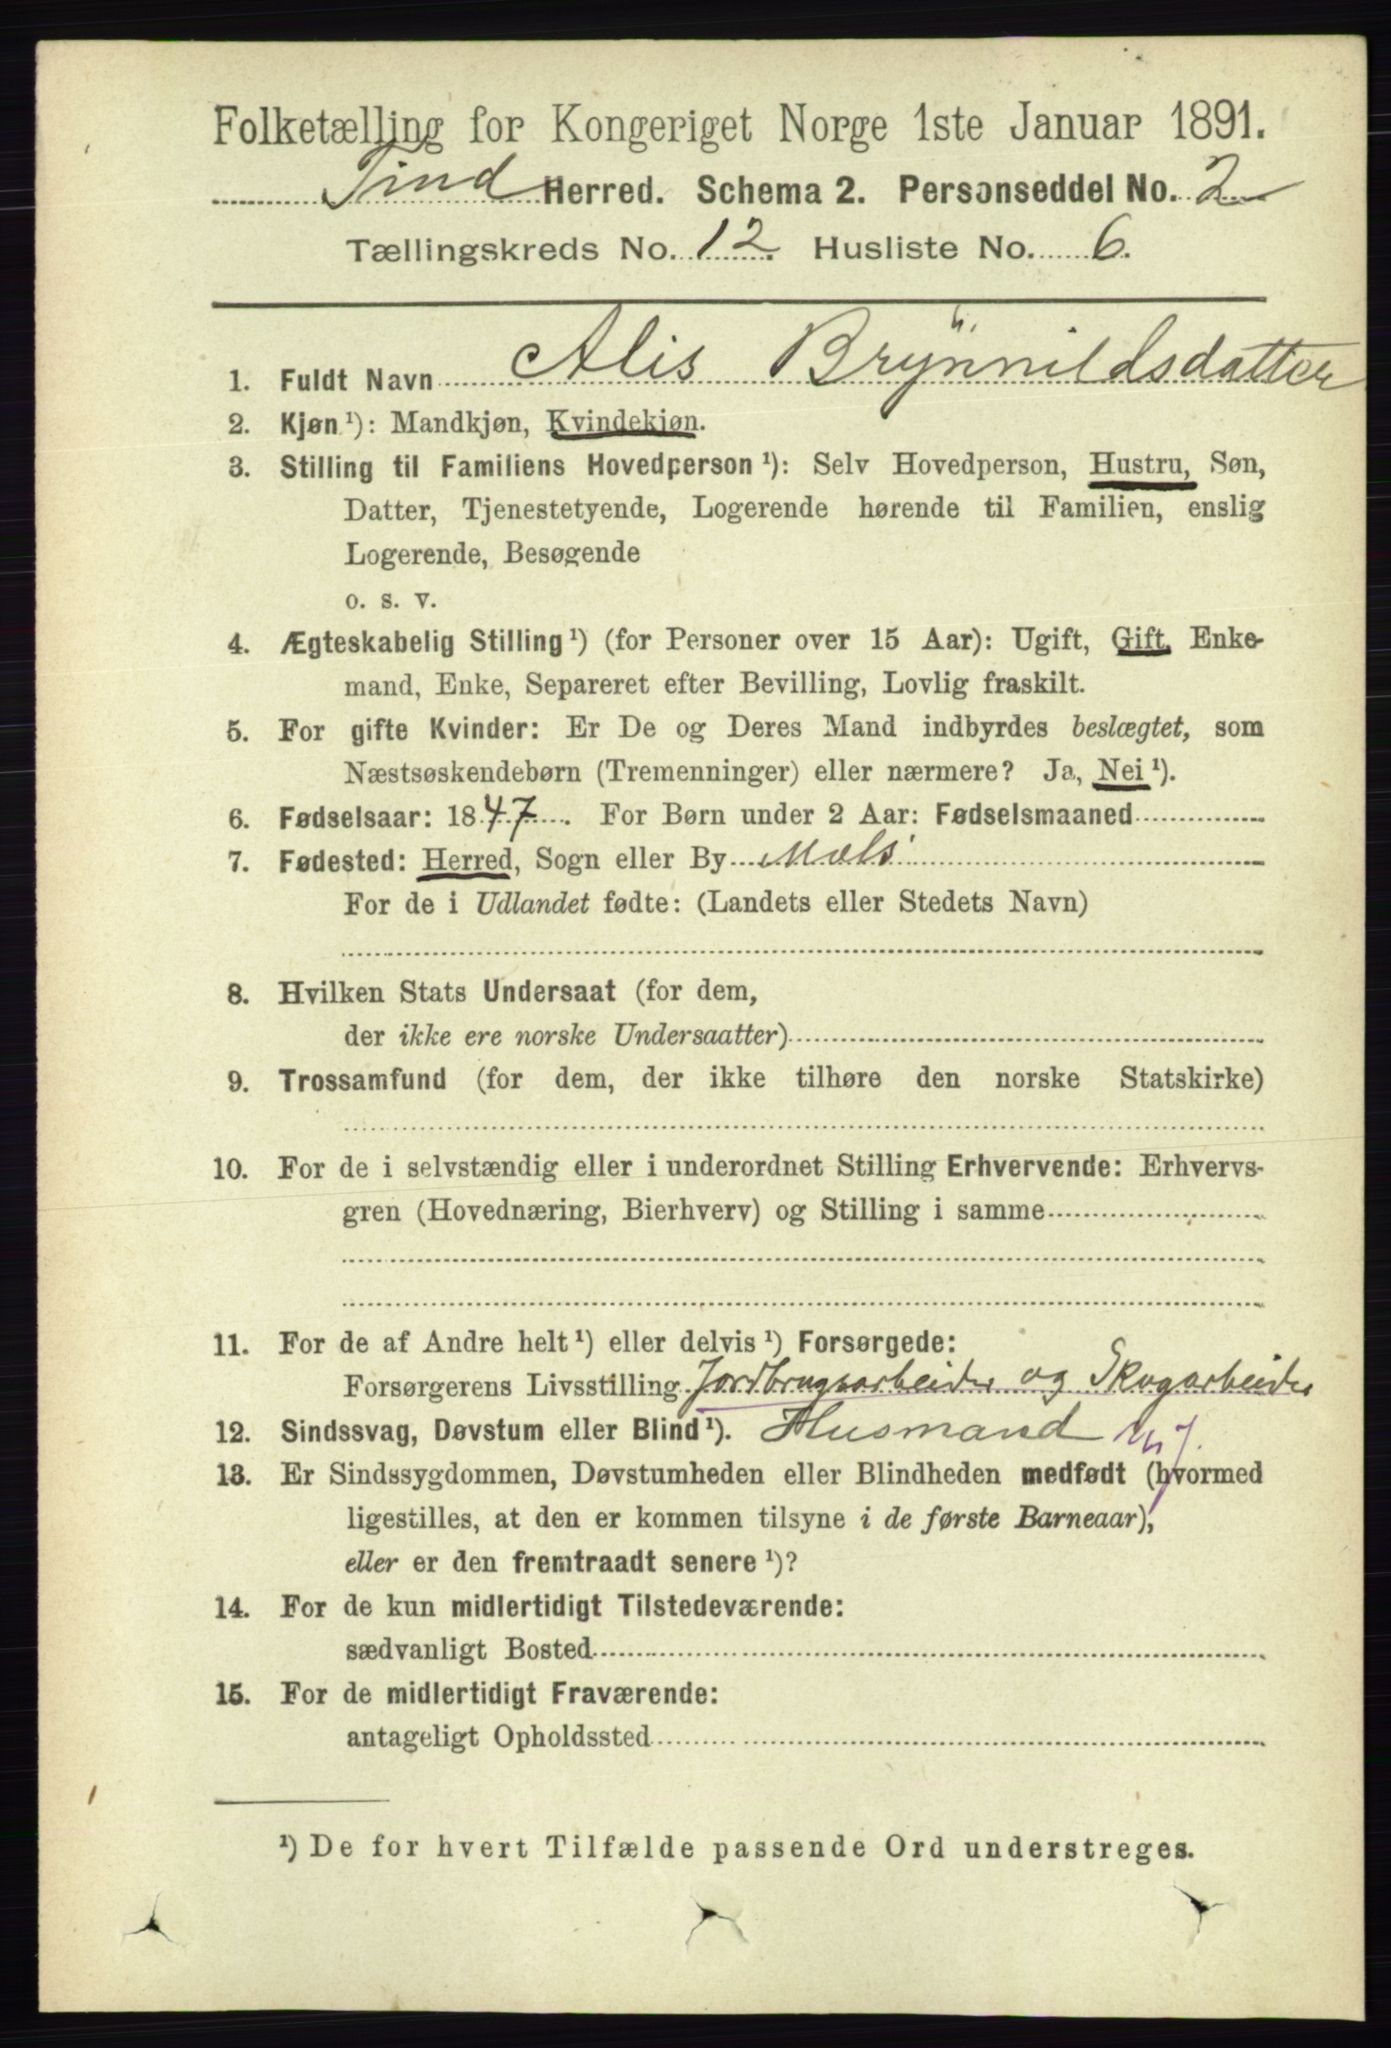 Folketælling for Kongeriget Norge 1ste Januar 1891.
Tind Herred. Schema 2. Personseddel No. 2
Tællingskreds No. 12. Husliste No. 6.
1. Fuldt Navn Alis Brynnildsdatter
2. Kjøn ¹): Mandkjøn, Kvindekjøn.
3. Stilling til Familiens Hovedperson ¹): Selv Hovedperson, Hustru, Søn,
Datter, Tjenestetyende, Logerende hørende til Familien, enslig
Logerende, Besøgende
o. s. v.
4. Ægteskabelig Stilling ¹) (for Personer over 15 Aar): Ugift, Gift, Enke-
mand, Enke, Separeret efter Bevilling, Lovlig fraskilt.
5. For gifte Kvinder: Er De og Deres Mand indbyrdes beslægtet, som
Næstsøskendebørn (Tremenninger) eller nærmere? Ja, Nei ¹).
6. Fødselsaar: 1847. For Børn under 2 Aar: Fødselsmaaned
7. Fødested: Herred, Sogn eller By Mæls
For de i Udlandet fødte: (Landets eller Stedets Navn)
8. Hvilken Stats Undersaat (for dem,
der ikke ere norske Undersaatter)
9. Trossamfund (for dem, der ikke tilhøre den norske Statskirke)
10. For de i selvstændig eller i underordnet Stilling Erhvervende: Erhvervs-
gren (Hovednæring, Bierhverv) og Stilling i samme
11. For de af Andre helt ¹) eller delvis ¹) Forsørgede:
Forsørgerens Livsstilling Jordbrugsarbeider og Skogarbeider
12. Sindssvag, Døvstum eller Blind ¹). Husmand m/j.
13. Er Sindssygdommen, Døvstumheden eller Blindheden medfødt (hvormed
ligestilles, at den er kommen tilsyne i de første Barneaar),
eller er den fremtraadt senere ¹)?
14. For de kun midlertidigt Tilstedeværende:
sædvanligt Bosted
15. For de midlertidigt Fraværende:
antageligt Opholdssted
¹) De for hvert Tilfælde passende Ord understreges.